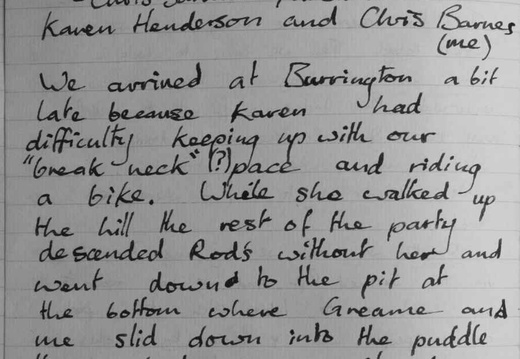 Karen Henderson and Chris Barnes
(me)
We arrived at Burrington a bit
late because Karen had
difficulty keeping up with our
"break neck" (?) pace and riding
a bike. While she walked up
the hill the rest of the party
descended Rod's without her and
went down to the pit at
the bottom where Greame and
me slid down into the puddle